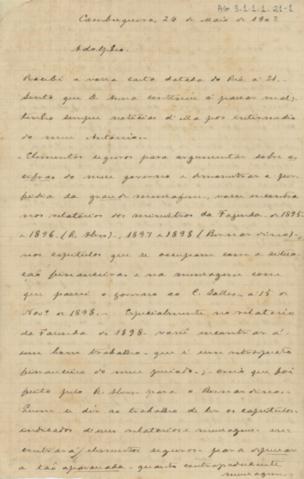 AG 3.1.1.1.21-1
Cambuquira, 24 de Maio de 1902
Adolpho.
Recebi a vossa carta datada do Rio a 21.
Sinto que D. Anna continue a passar mal,
tenho sempre noticias d'ella por intermedio
do meu Antonio.
Elementos seguros para argumentar sobre as
cifras do meu governo e demonstrar a per-
fidia da mensagem, voce encontra
nos relatorios dos ministros da Fazenda de 1895
e 1896 (R. Alves), 1897 e 1898 (Bernardino),
nos capitulos que se occupam com a situa-
ção financeira e na mensagem com
que passei o governo ao C. Salles, a 15 de
Nov.º de 1898. Especialmente no relatorio
da Fazenda de 1898 você encontrará
um bom trabalho, que é um retrospecto
financeiro do meu periodo, e que foi
feito pelo R. Alves para o Bernardino.
Quem se dér ao trabalho de ler os capitulos
indicados d'esses relatorios e mensagem en-
contrará elementos seguros para
a tão quanto contraproducente
mensagem